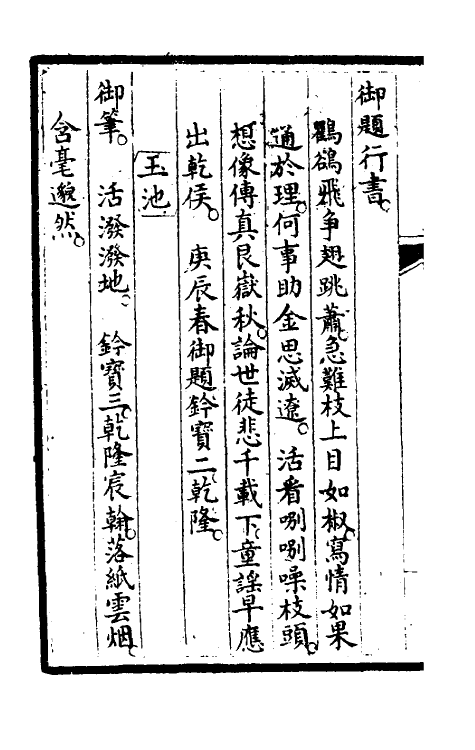 御題行書。
鸜鵒飛争翅跳蕭。急難枝上目如椒。寫情如果
通於理。何事助金思滅遼。 活看唎唎噪枝頭。
想像傳真艮嶽秋。論世徒悲千載下。童謠早應
出乾侯。 庚辰春御題鈐寶二。乾隆。
玉池
御筆。 活潑潑地。 鈐寶三。乾隆宸翰。落紙雲烟。
含毫邈然。